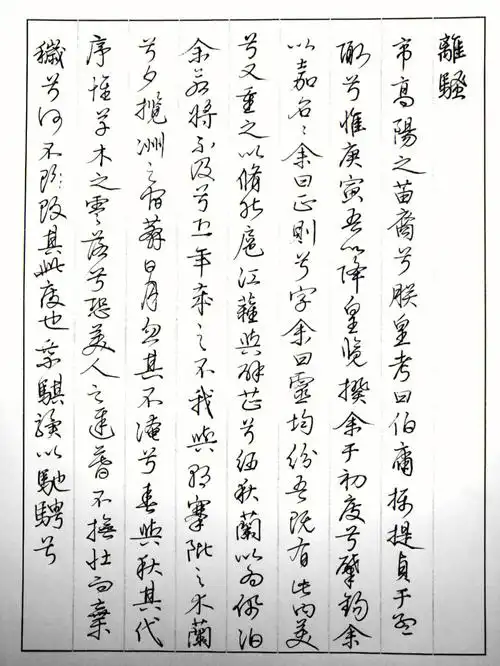 離騷
帝高陽之苗裔兮朕皇考曰伯庸攝提貞于孟
陬兮惟庚寅吾以降皇覽揆余于初度兮肇錫余
以嘉名〻余曰正則兮字余曰靈均紛吾既有此內美
兮又重之以脩能扈江蘺與辟芷兮紉秋蘭以為佩汩
余若將不及兮恐年歲之不我與朝搴阰之木蘭
兮夕攬洲之宿莽日月忽其不淹兮春與秋其代
序惟草木之零落兮恐美人之遲暮不撫壯而棄
穢兮何不改其此度也乘騏驥以馳騁兮